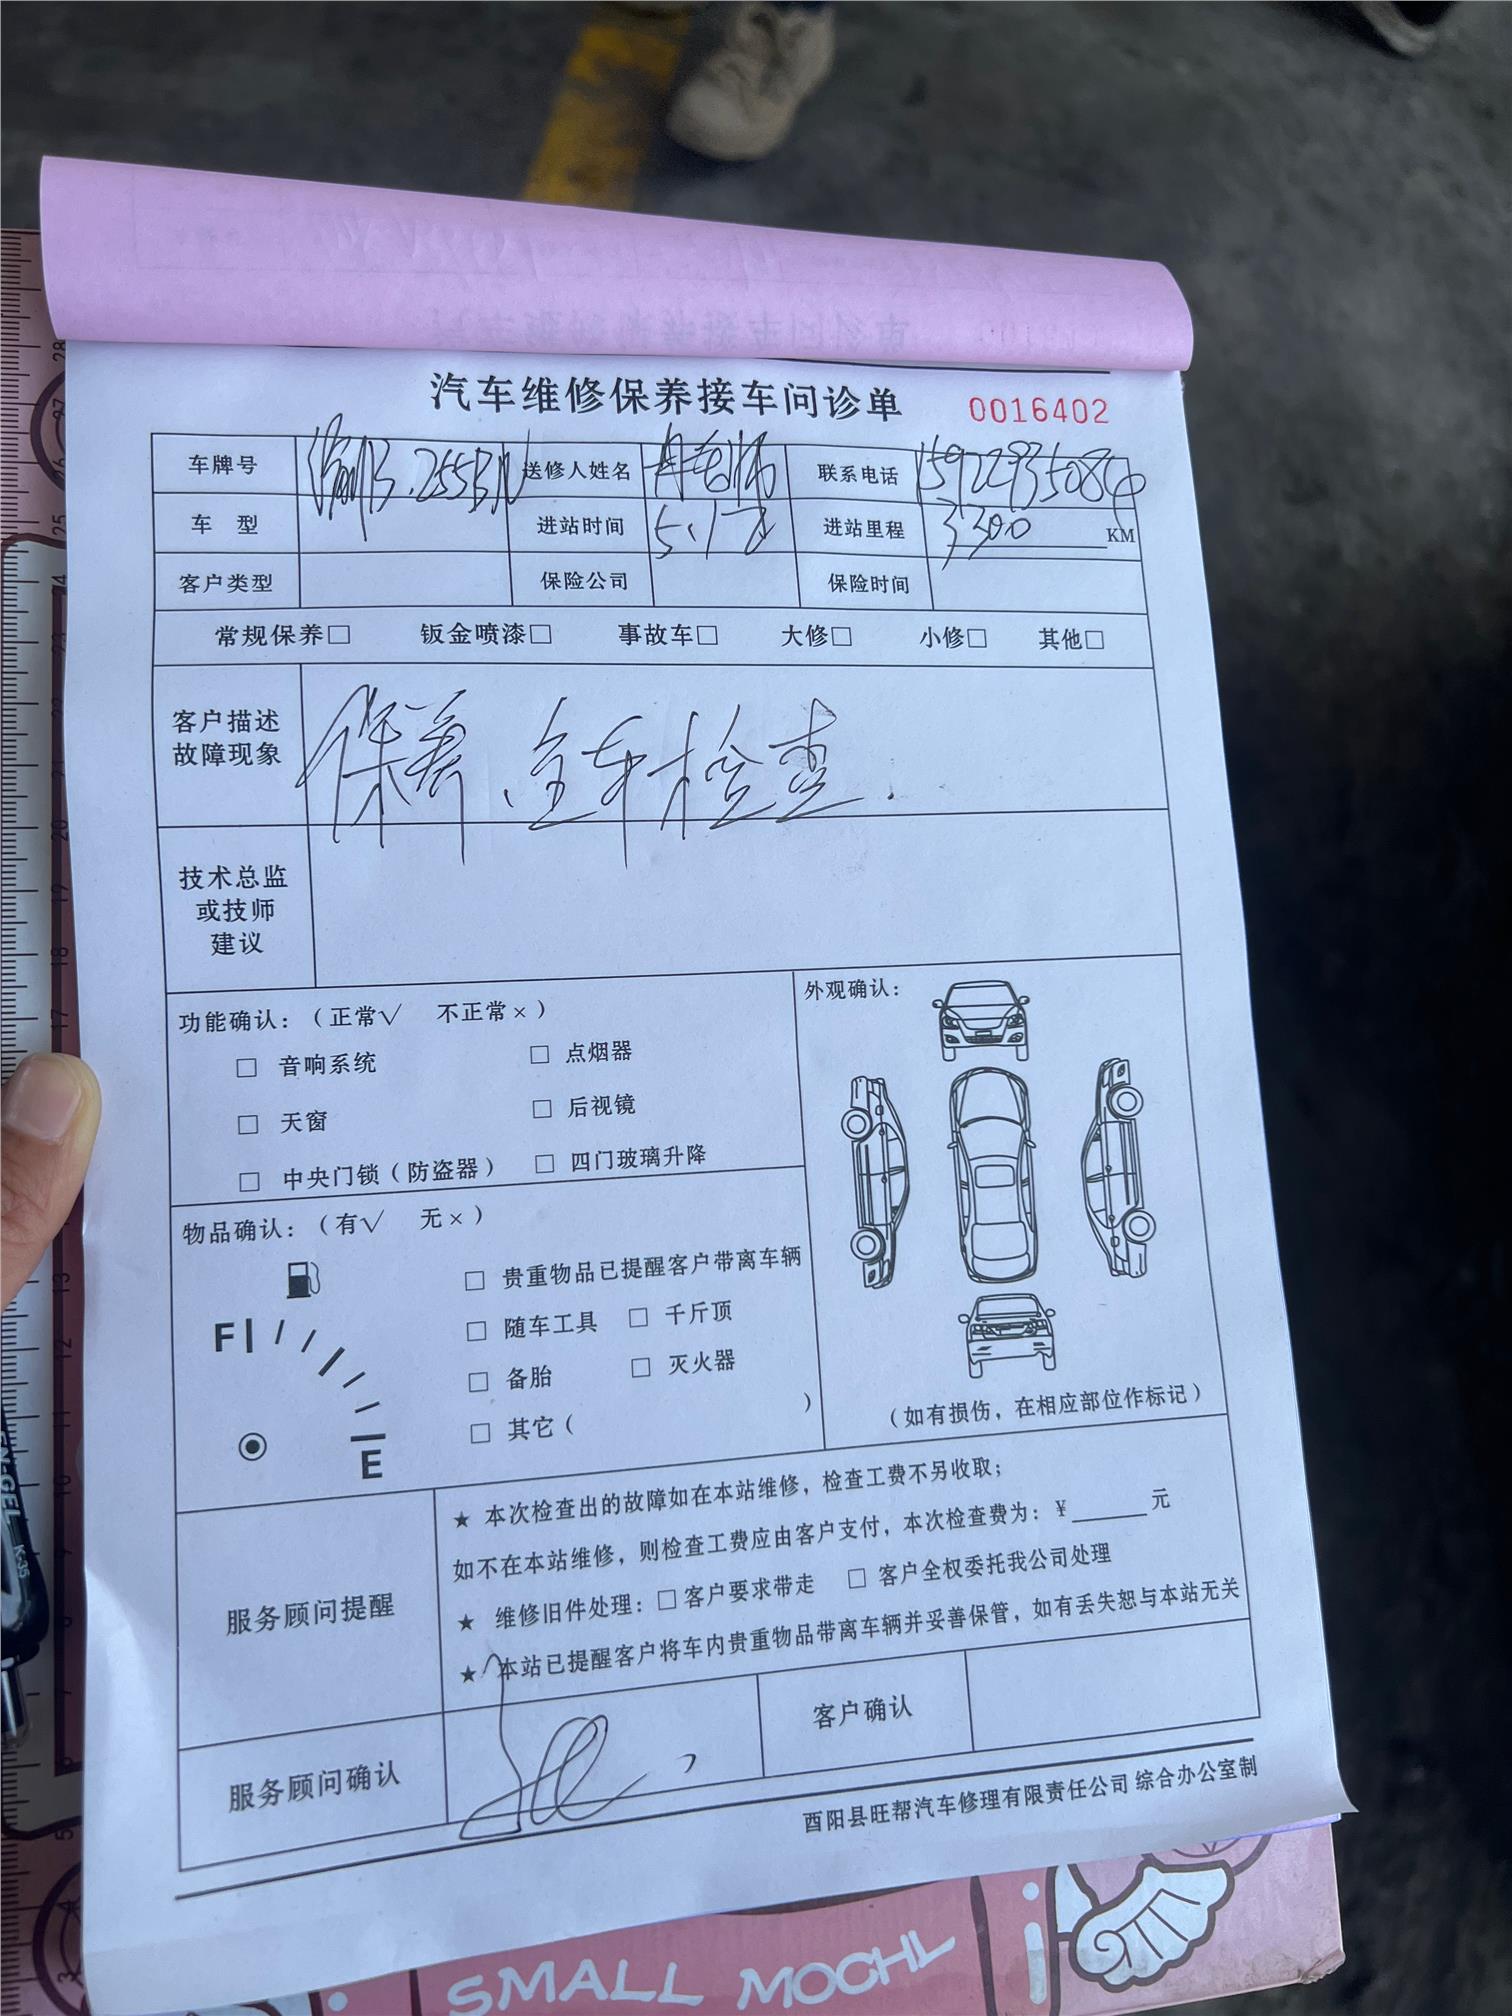 汽车维修保养接车问诊单 0016402
车牌号 渝B.255BN 送修人姓名 冉老师 联系电话 15922935084
车 型 进站时间 5.17 进站里程 3300 KM
客户类型 保险公司 保险时间
常规保养□ 钣金喷漆□ 事故车□ 大修□ 小修□ 其他□
客户描述
故障现象
保养、全车检查.
技术总监
或技师
建议
功能确认:(正常√ 不正常×)
□ 音响系统 □ 点烟器
□ 天窗 □ 后视镜
□ 中央门锁(防盗器) □ 四门玻璃升降
外观确认:
(如有损伤,在相应部位作标记)
物品确认:(有√ 无×)
F
E
□ 贵重物品已提醒客户带离车辆
□ 随车工具 □ 千斤顶
□ 备胎 □ 灭火器
□ 其它( )
服务顾问提醒
★ 本次检查出的故障如在本站维修,检查工费不另收取;
如不在本站维修,则检查工费应由客户支付,本次检查费为:¥______元
★ 维修旧件处理:□客户要求带走 □ 客户全权委托我公司处理
★ 本站已提醒客户将车内贵重物品带离车辆并妥善保管,如有丢失恕与本站无关
服务顾问确认 客户确认
酉阳县旺帮汽车修理有限责任公司 综合办公室制
SMALL MOCHI